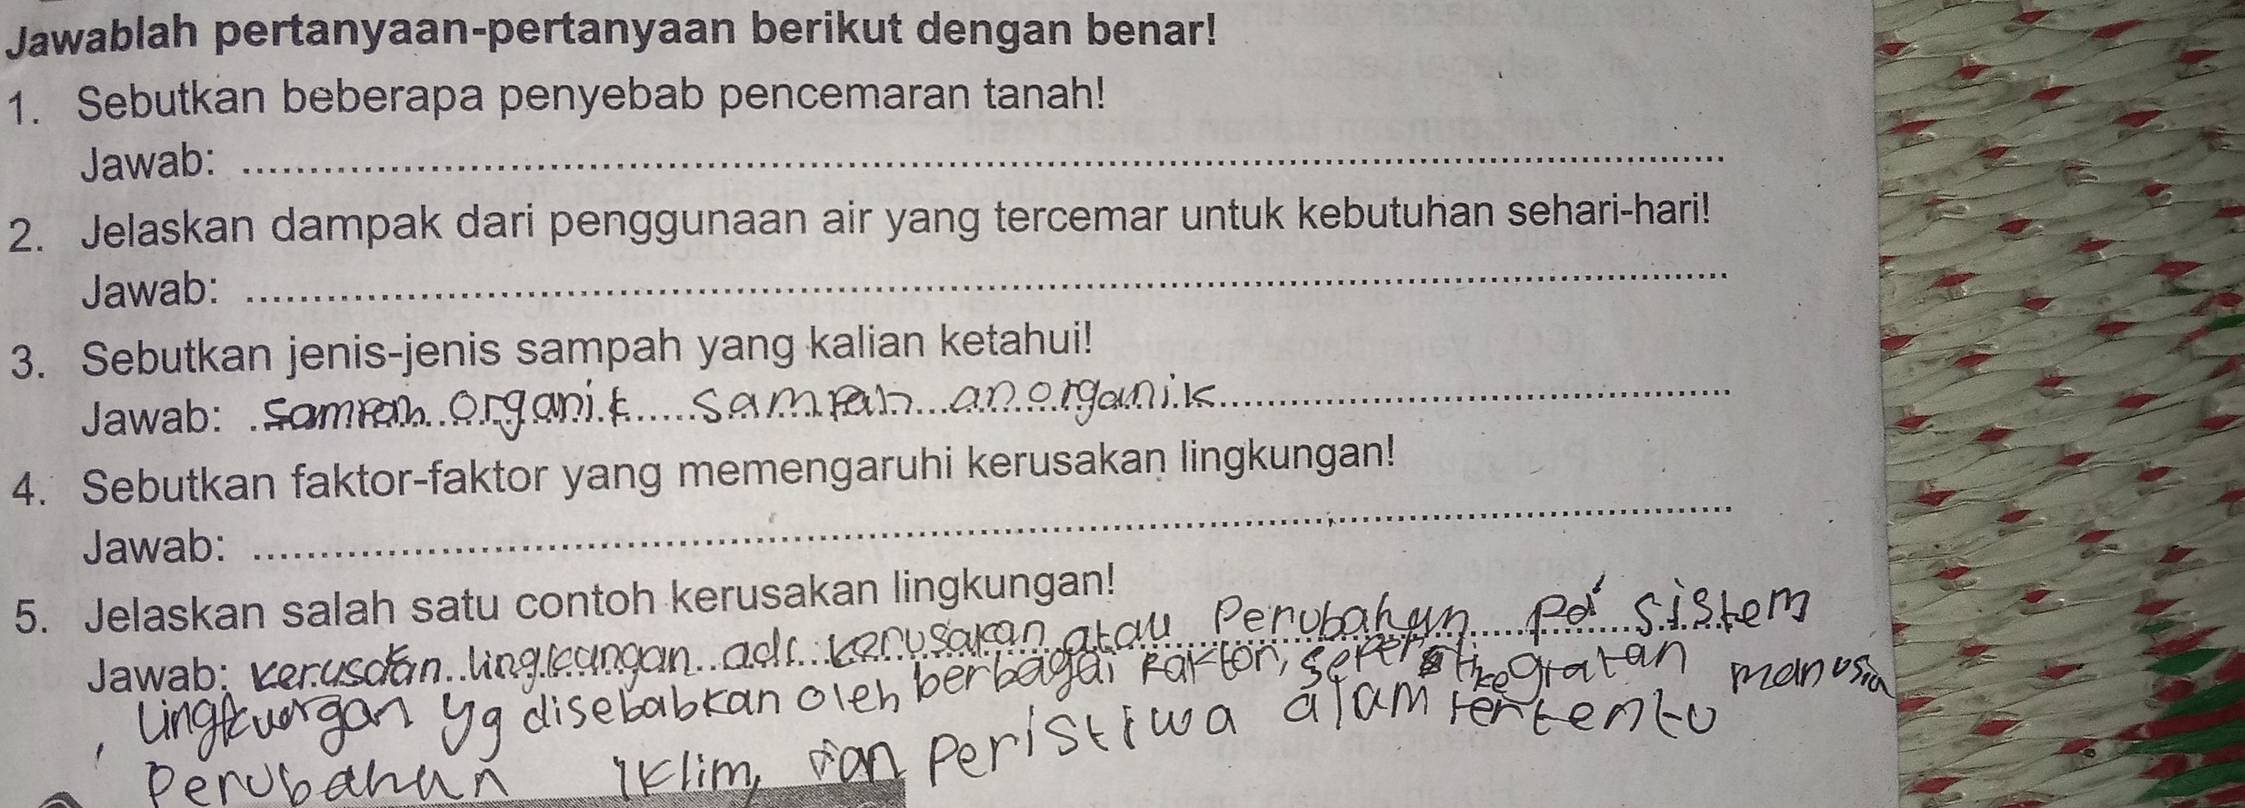 Jawablah pertanyaan-pertanyaan berikut dengan benar!
1. Sebutkan beberapa penyebab pencemaran tanah!
Jawab:
2. Jelaskan dampak dari penggunaan air yang tercemar untuk kebutuhan sehari-hari!
Jawab:
3. Sebutkan jenis-jenis sampah yang kalian ketahui!
Jawab: Sampah Organik sampah anorganik
4. Sebutkan faktor-faktor yang memengaruhi kerusakan lingkungan!
Jawab:
5. Jelaskan salah satu contoh kerusakan lingkungan!
Jawab: kerusaan lingkungan adl kerusakan atau Perubahan Pd sistem
yg disebabkan oleh berbagai Faktor, seperti kegiatan manusia
Perubahan Iklim, dan Peristiwa alam tertentu